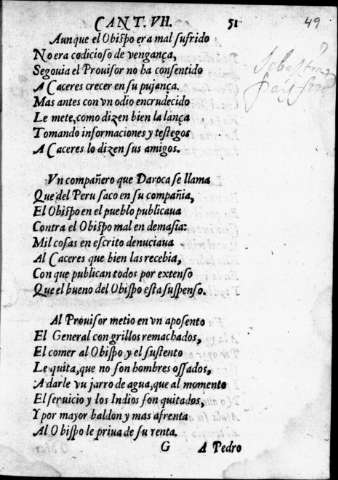 CANT. VII. 51
49
Aunque el Obispo era mal sufrido
No era codicioso de vengança,
Segouia el Prouisor no ha consentido
A Caceres crecer en su pujança.
Mas antes con vn odio encrudecido
Le mete, como dizen bien la lança
Tomando informaciones y testegos
A Caceres lo dizen sus amigos.
Vn compañero que Daroca se llama
Que del Peru saco en su compañia,
El Obispo en el pueblo publicaua
Contra el Obispo mal en demasia:
Mil cosas en escrito denuciaua
Al Caceres que bien las recebia,
Con que publican todos por extenso
Que el bueno del Obispo esta suspenso.
Al Prouisor metio en vn aposento
El General con grillos remachados,
El comer al Obispo y el sustento
Le quita, que no son hombres ossados,
A darle vu jarro de agua, que al momento
El seruicio y los Indios son quitados,
Y por mayor baldon y mas afrenta
Al Obispo le priua de su renta.
G A Pedro